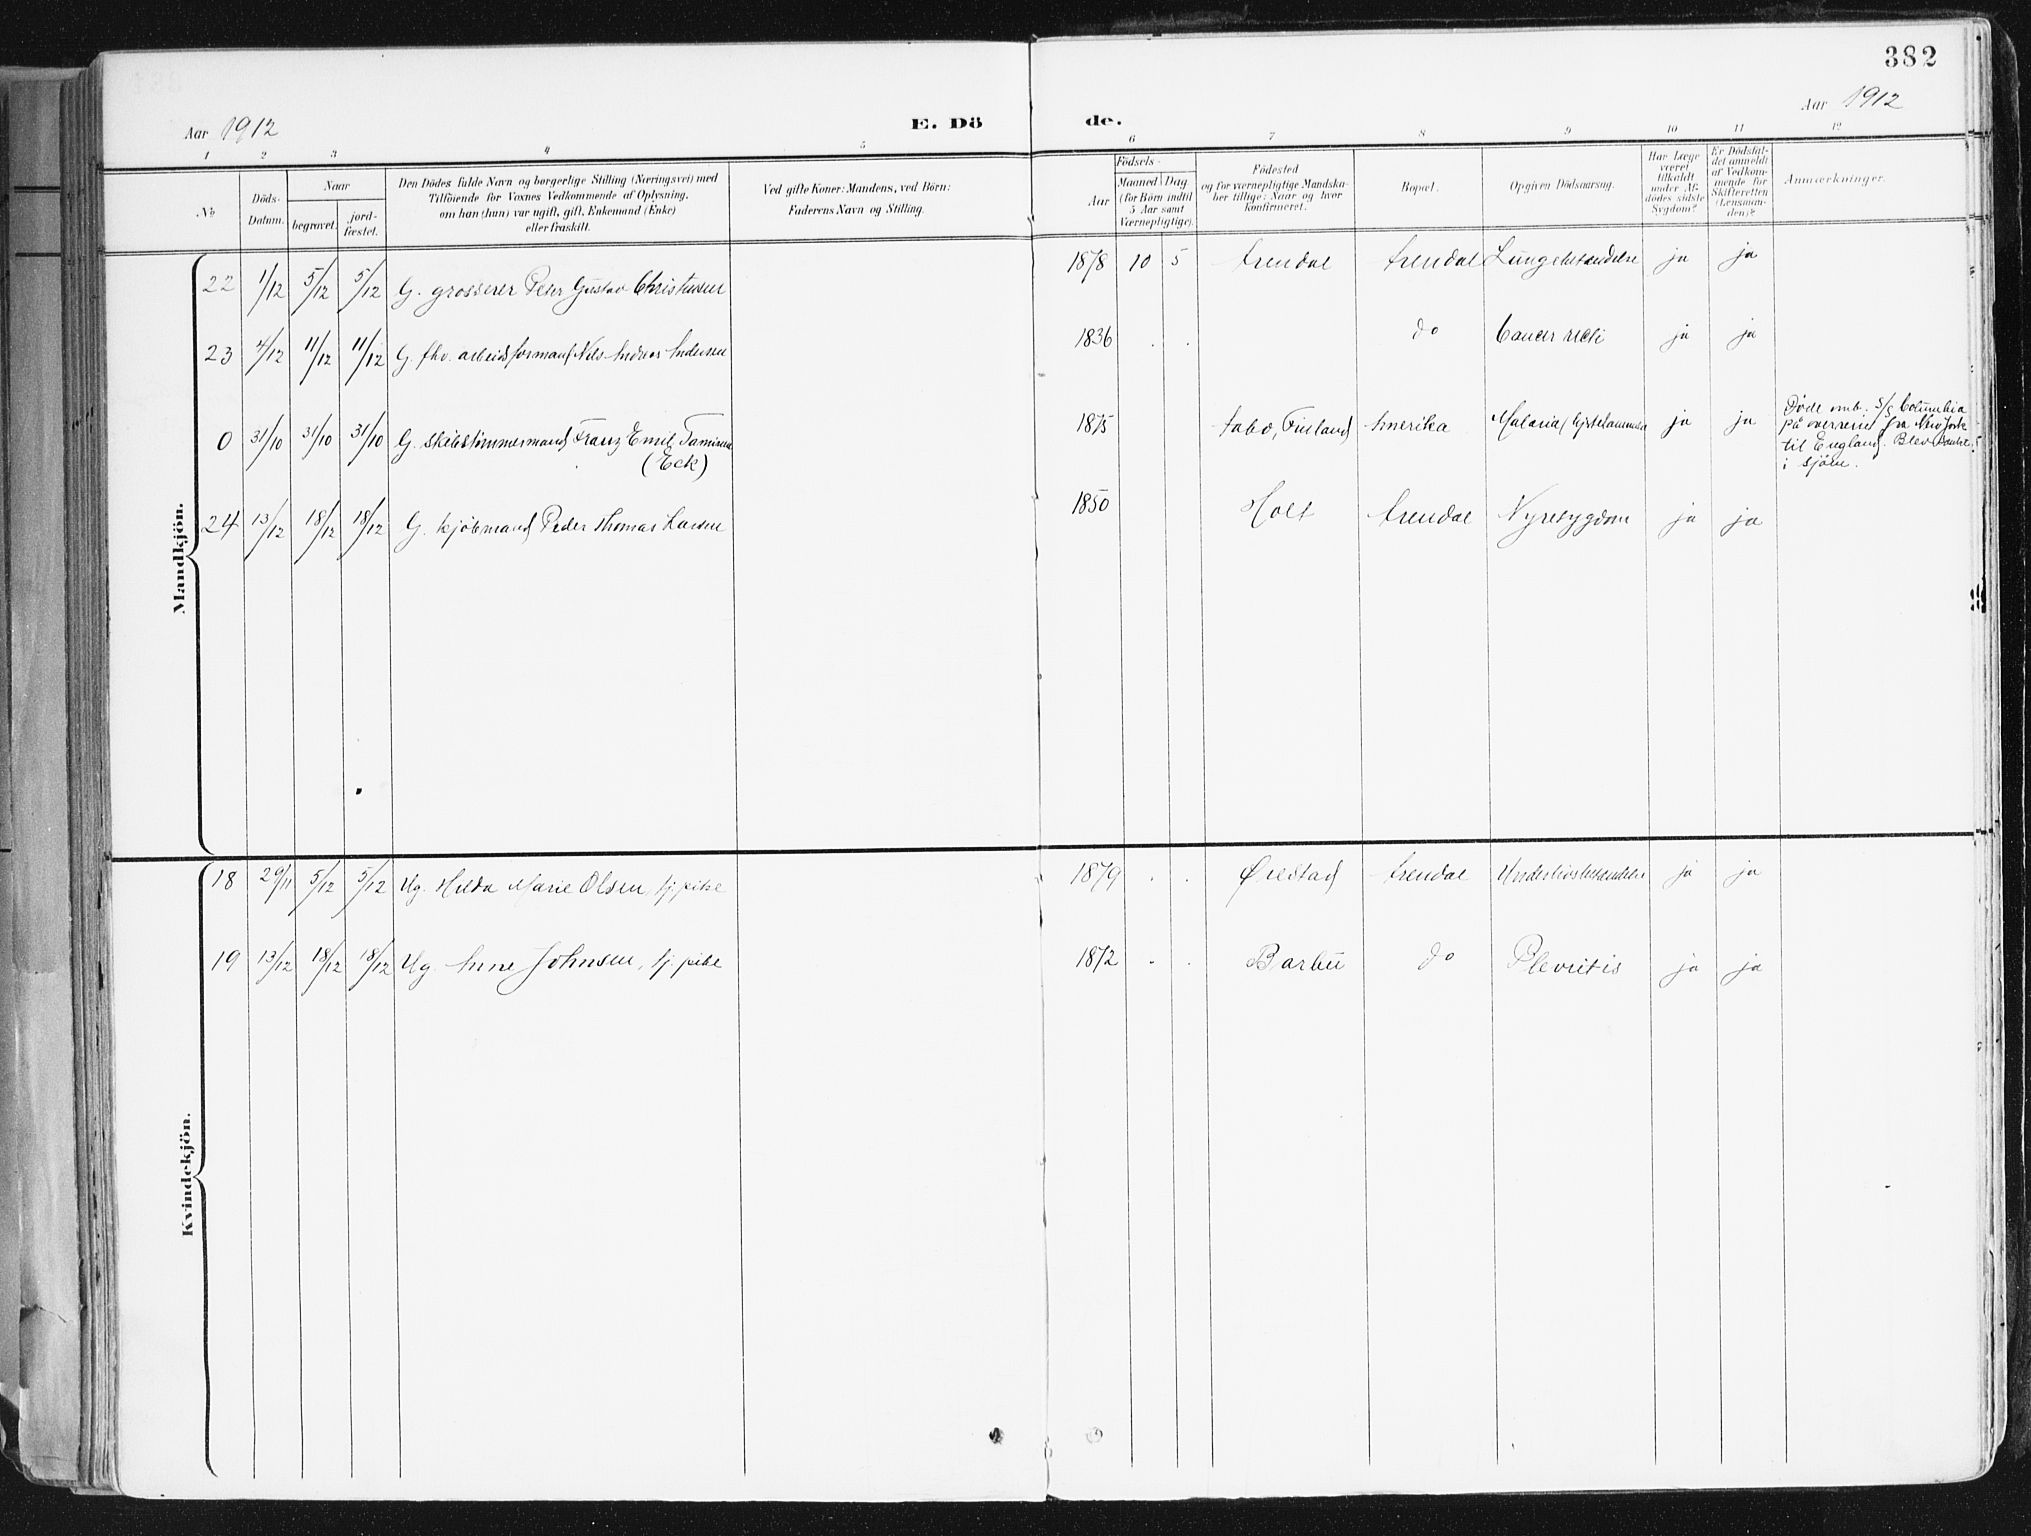 382
Aar 1912
E. Dö
de.
Aar 1912
1 2 3 4 5 6 7 8 9 10 11 12
No
Döds-
Datum.
Naar
begravet.
jord-
fæstet.
Den Dödes fulde Navn og borgerlige Stilling (Næringsvei) med
Tilföiende for Voxnes Vedkommende af Oplysning,
om han (hun) var ugift, gift, Enkemand (Enke)
eller fraskilt.
Ved gifte Koner: Mandens, ved Börn:
Faderens Navn og Stilling.
Födsels-
Aar
Maaned Dag
(for Börn indtil
5 Aar samt
Værnepligtige).
Födested
og for værnepligtige Mandska-
ber tillige: Naar og hvor
konfirmeret.
Bopæl.
Opgiven Dödsaarsag.
Har Læge
været
tilkaldt
under Af-
dödes sidste
Sygdom?
Er Dödsfal-
det anmeldt
af Vedkom-
mende for
Skifteretten
(Lensman-
den)?
Anmærkninger.
Mandkjön.
22 1/12 5/12 5/12 G. grosserer Peter Gustav Christensen 1878 10 5 Arendal Arendal Lungebetændelse ja ja
23 4/12 11/12 11/12 G. fhv. arbeidsformand Nils Andreas Andersen 1836 . . do Cancer recti ja ja
0 31/10 31/10 31/10 G. skibstømmermand Franz Emil 1875 Aabo, Finland Amerika Malaria ja ja
(Eck)
Døde omb. S/S Columbia
på overreise fra New York
til England. Blev sænket
i sjøen.
24 13/12 18/12 18/12 G. kjøbmand Peder Thomas Larsen 1850 Holt Arendal Nyresygdom ja ja
Kvindekjön.
18 29/11 5/12 5/12 Ug. Hilda Marie Olsen, tj.pike 1879 . . Øiestad Arendal Underlivsbetændelse ja ja
19 13/12 18/12 18/12 Ug. Anne Johnsen, tj.pike 1872 . . Barbu do Plevritis ja ja